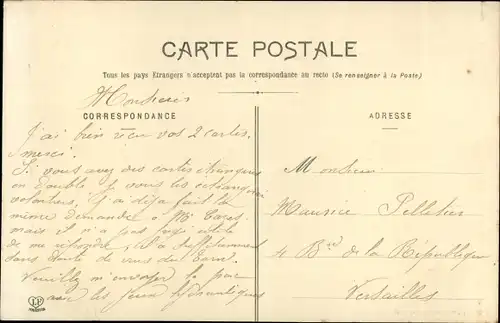 CARTE POSTALE
Tous les pays Etrangers n'acceptent pas la correspondance au recto (Se renseigner à la Poste)
Monsieur
CORRESPONDANCE
J'ai bien reçu vos 2 cartes
merci.
Si vous avez des cartes étrangères
en double je vous les échangerai
volontiers, j'ai déjà fait la
même demande à Mr
mais il n'a pas jugé utile
de me répondre, il a suffisamment
sans doute de vues du Tarn.
Veuillez m'envoyer
les Jeux
ADRESSE
Monsieur
Maurice Pelletier
4 Bard de la République
Versailles